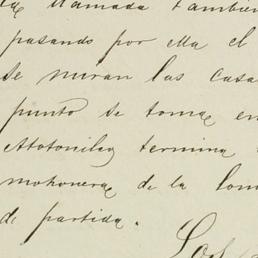 llamada también
pasando por ella el
se miran las casa
punto se toma en
Atotonilco termina
mohonera de la lom
de partida.
Los